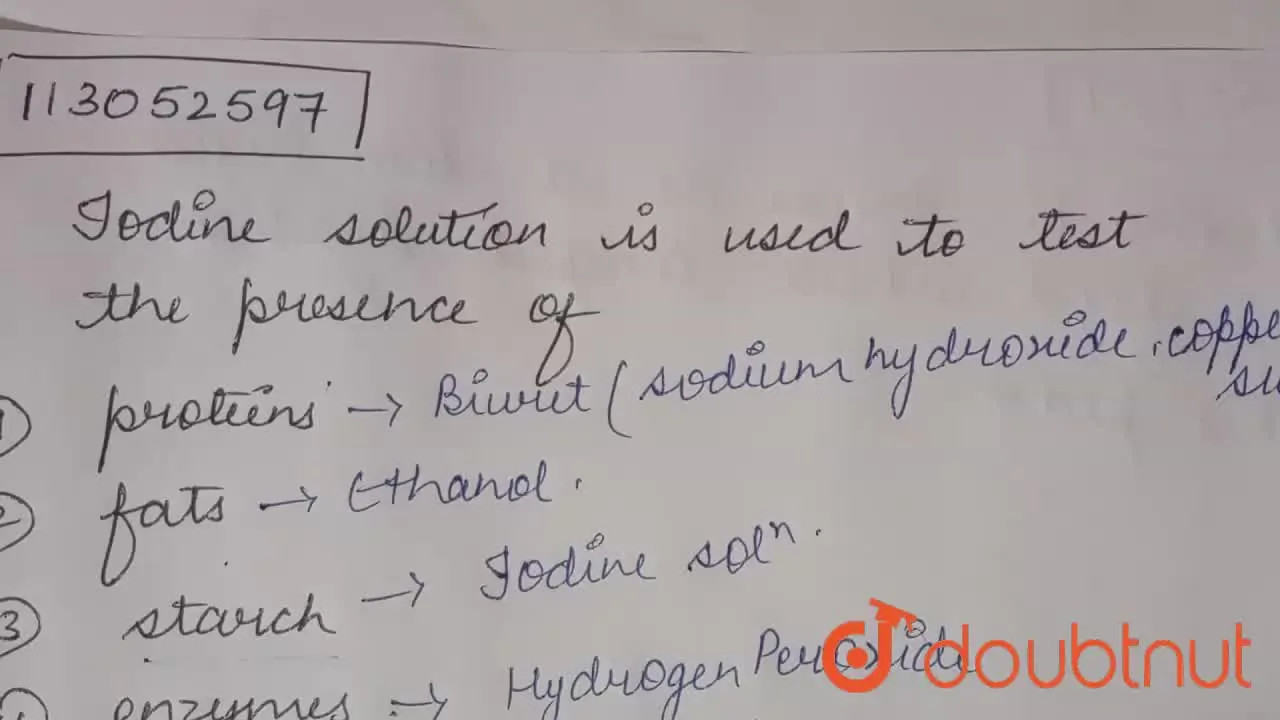 113052597
Iodine solution is used to test
the presence of
1 proteins → Biuret (sodium hydroxide, coppe
su
2 fats → Ethanol.
3 starch → Iodine solⁿ.
enzymes → Hydrogen Peroxide
doubtnut